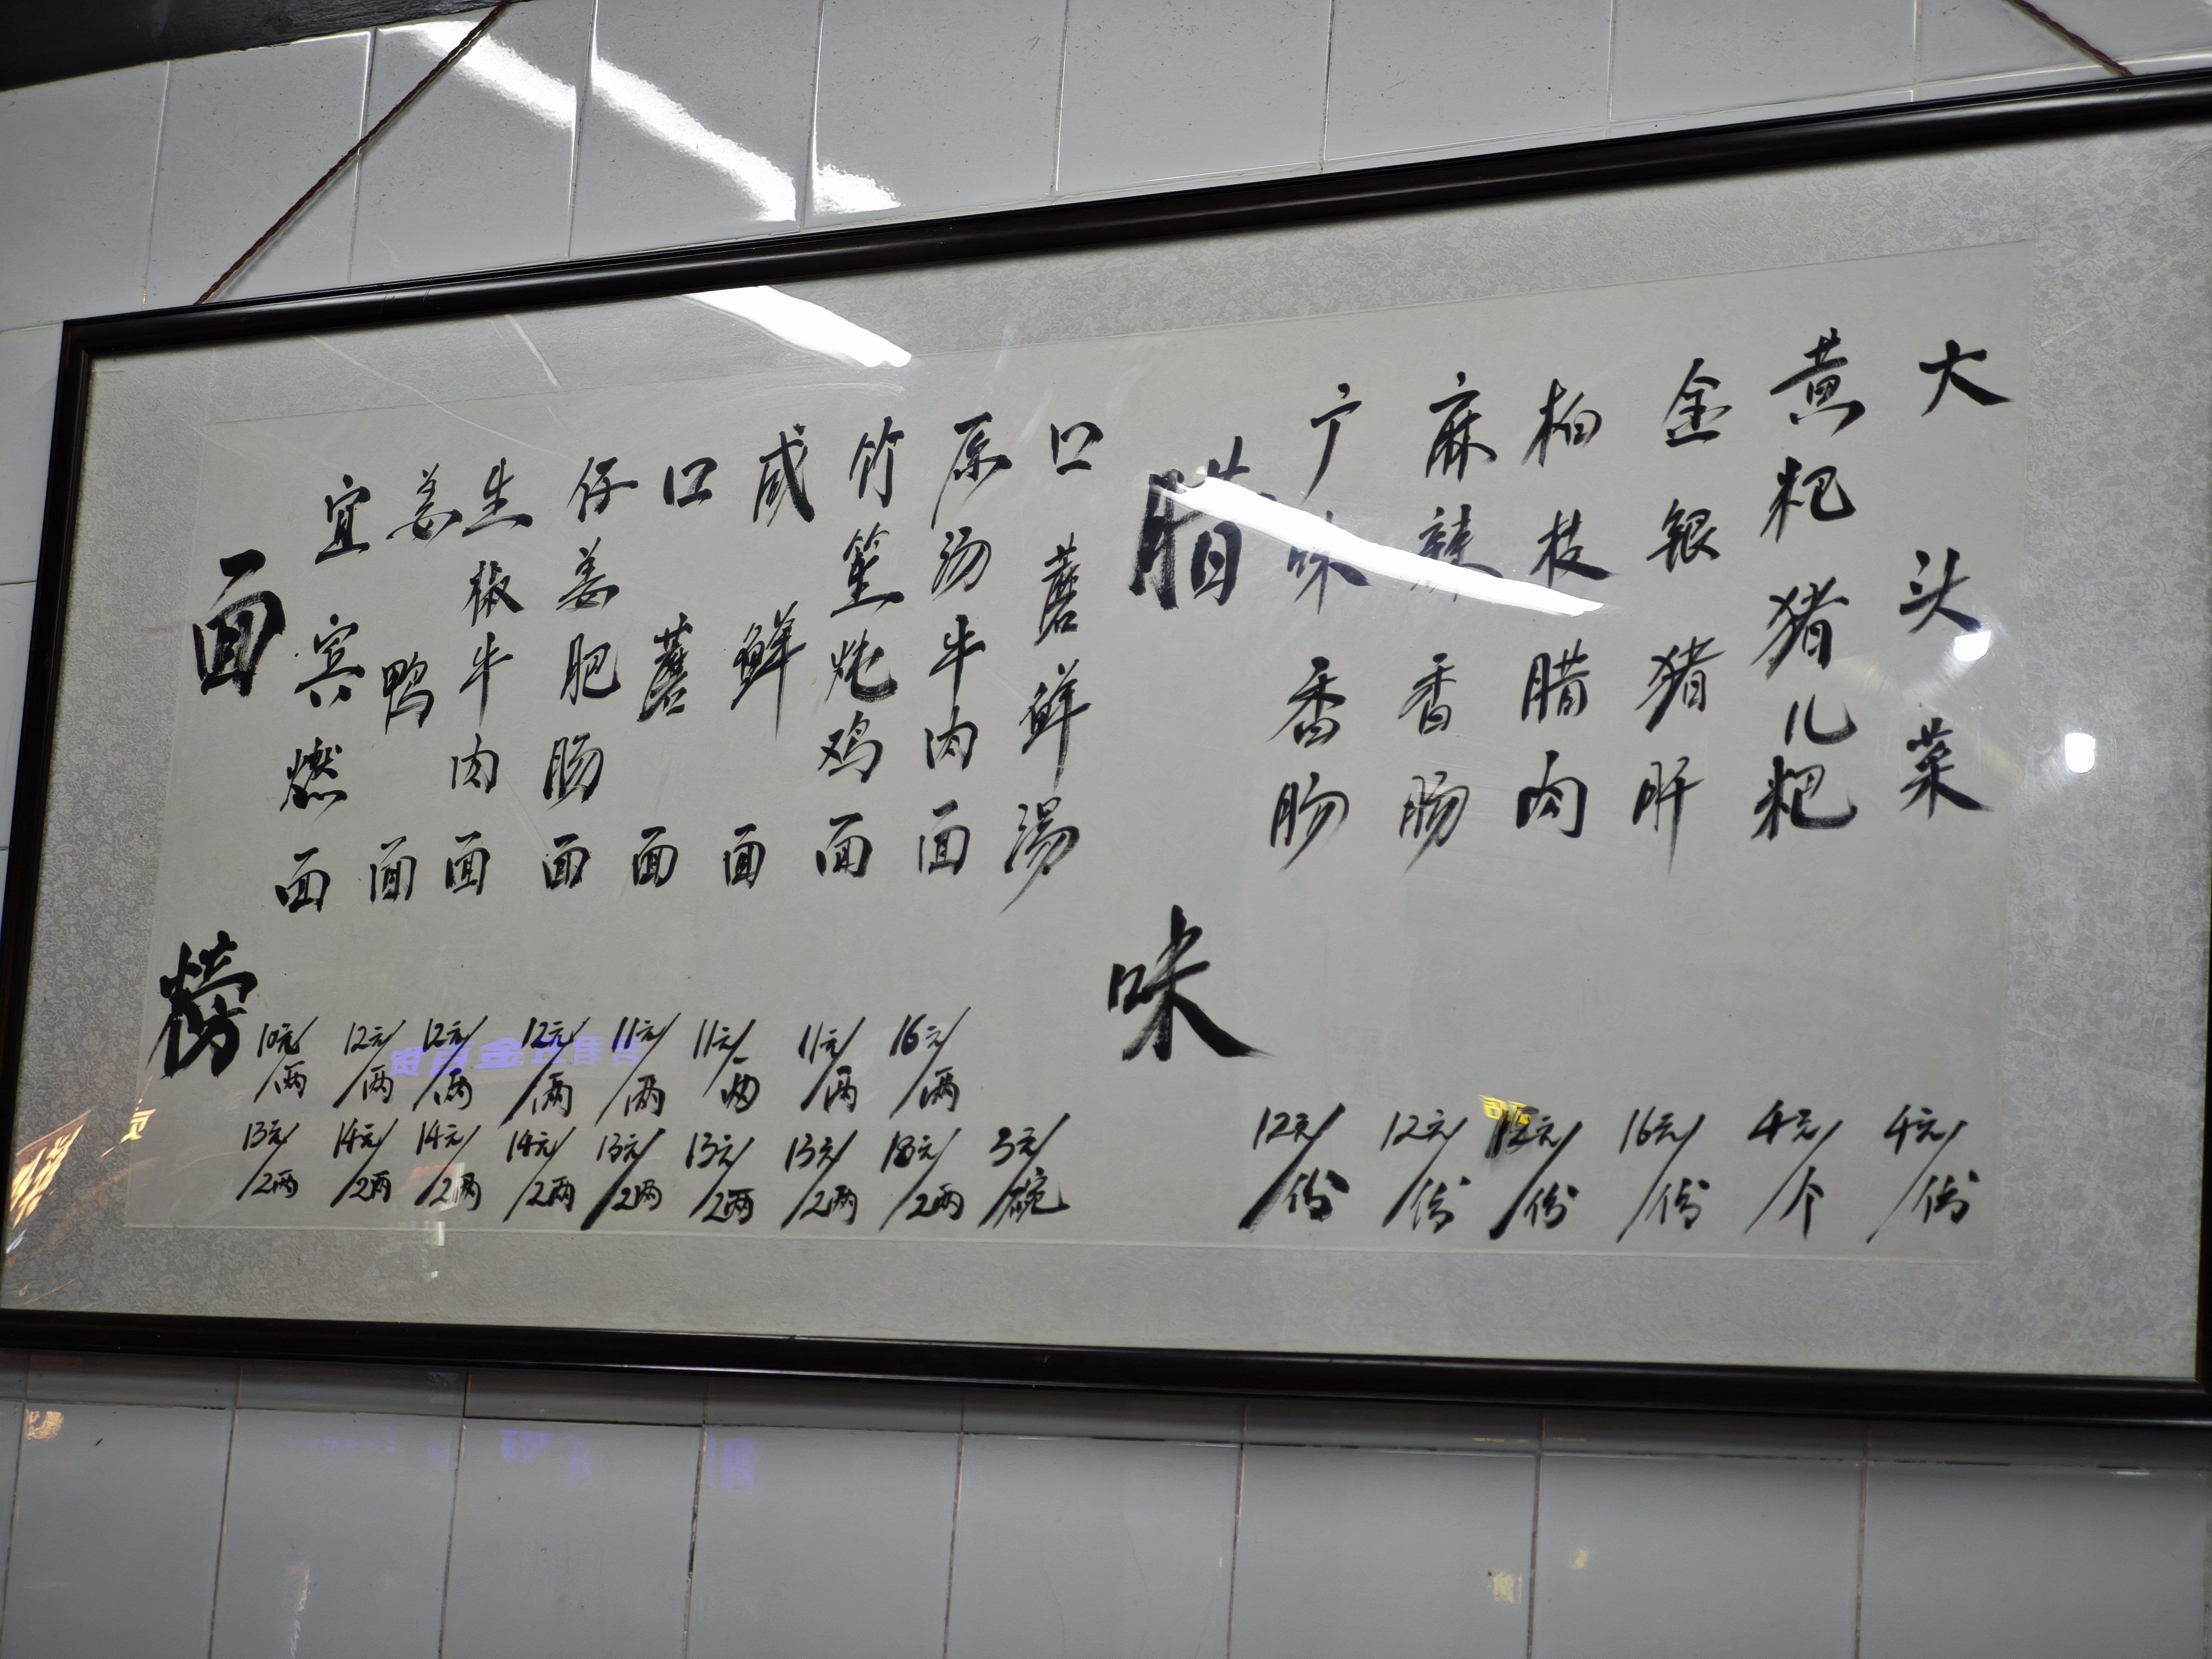 面榜
宜宾燃面
10元/两
13元/2两
姜鸭面
12元/两
14元/2两
生椒牛肉面
12元/两
14元/2两
仔姜肥肠面
12元/两
14元/2两
口蘑面
11元/两
13元/2两
咸鲜面
11元/一两
13元/2两
竹笙炖鸡面
11元/两
13元/2两
原汤牛肉面
16元/两
18元/2两
口蘑鲜湯
3元/碗
腊味
广味香肠
12元/份
麻辣香肠
12元/份
柏枝腊肉
元/份
金银猪肝
16元/份
黄粑猪儿粑
4元/个
大头菜
4元/份